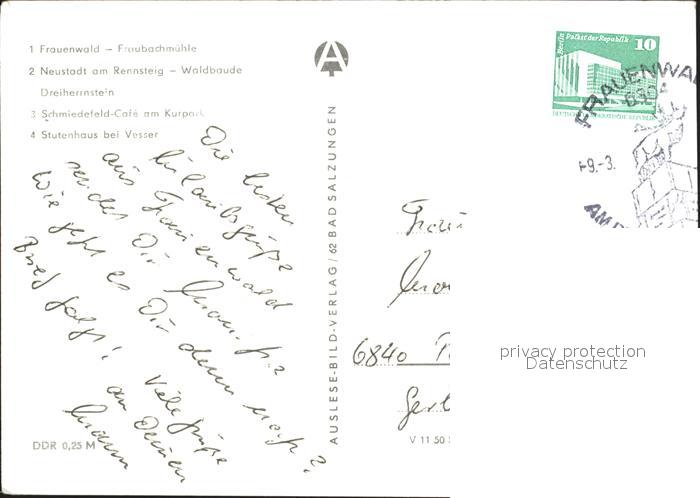 1 Frauenwald – Fraubachmühle
2 Neustadt am Rennsteig – Waldbaude
Dreiherrnstein
3 Schmiedefeld-Café am Kurpark
4 Stutenhaus bei Vesser
Die besten
Urlaubsgrüße
aus Frauenwald
sendet Dir
Wie geht es Dir denn noch?
Brief folgt!
Viele Grüße
an Deinen
Mann
DDR 0,25 M
AUSLESE-BILD-VERLAG / 62 BAD SALZUNGEN
Berlin Palast der Republik
10
DEUTSCHE DEMOKRATISCHE REPUBLIK
FRAUENWAL
6304
-9.-3.
AM
Frau
6840
V 11 50
privacy protection
Datenschutz